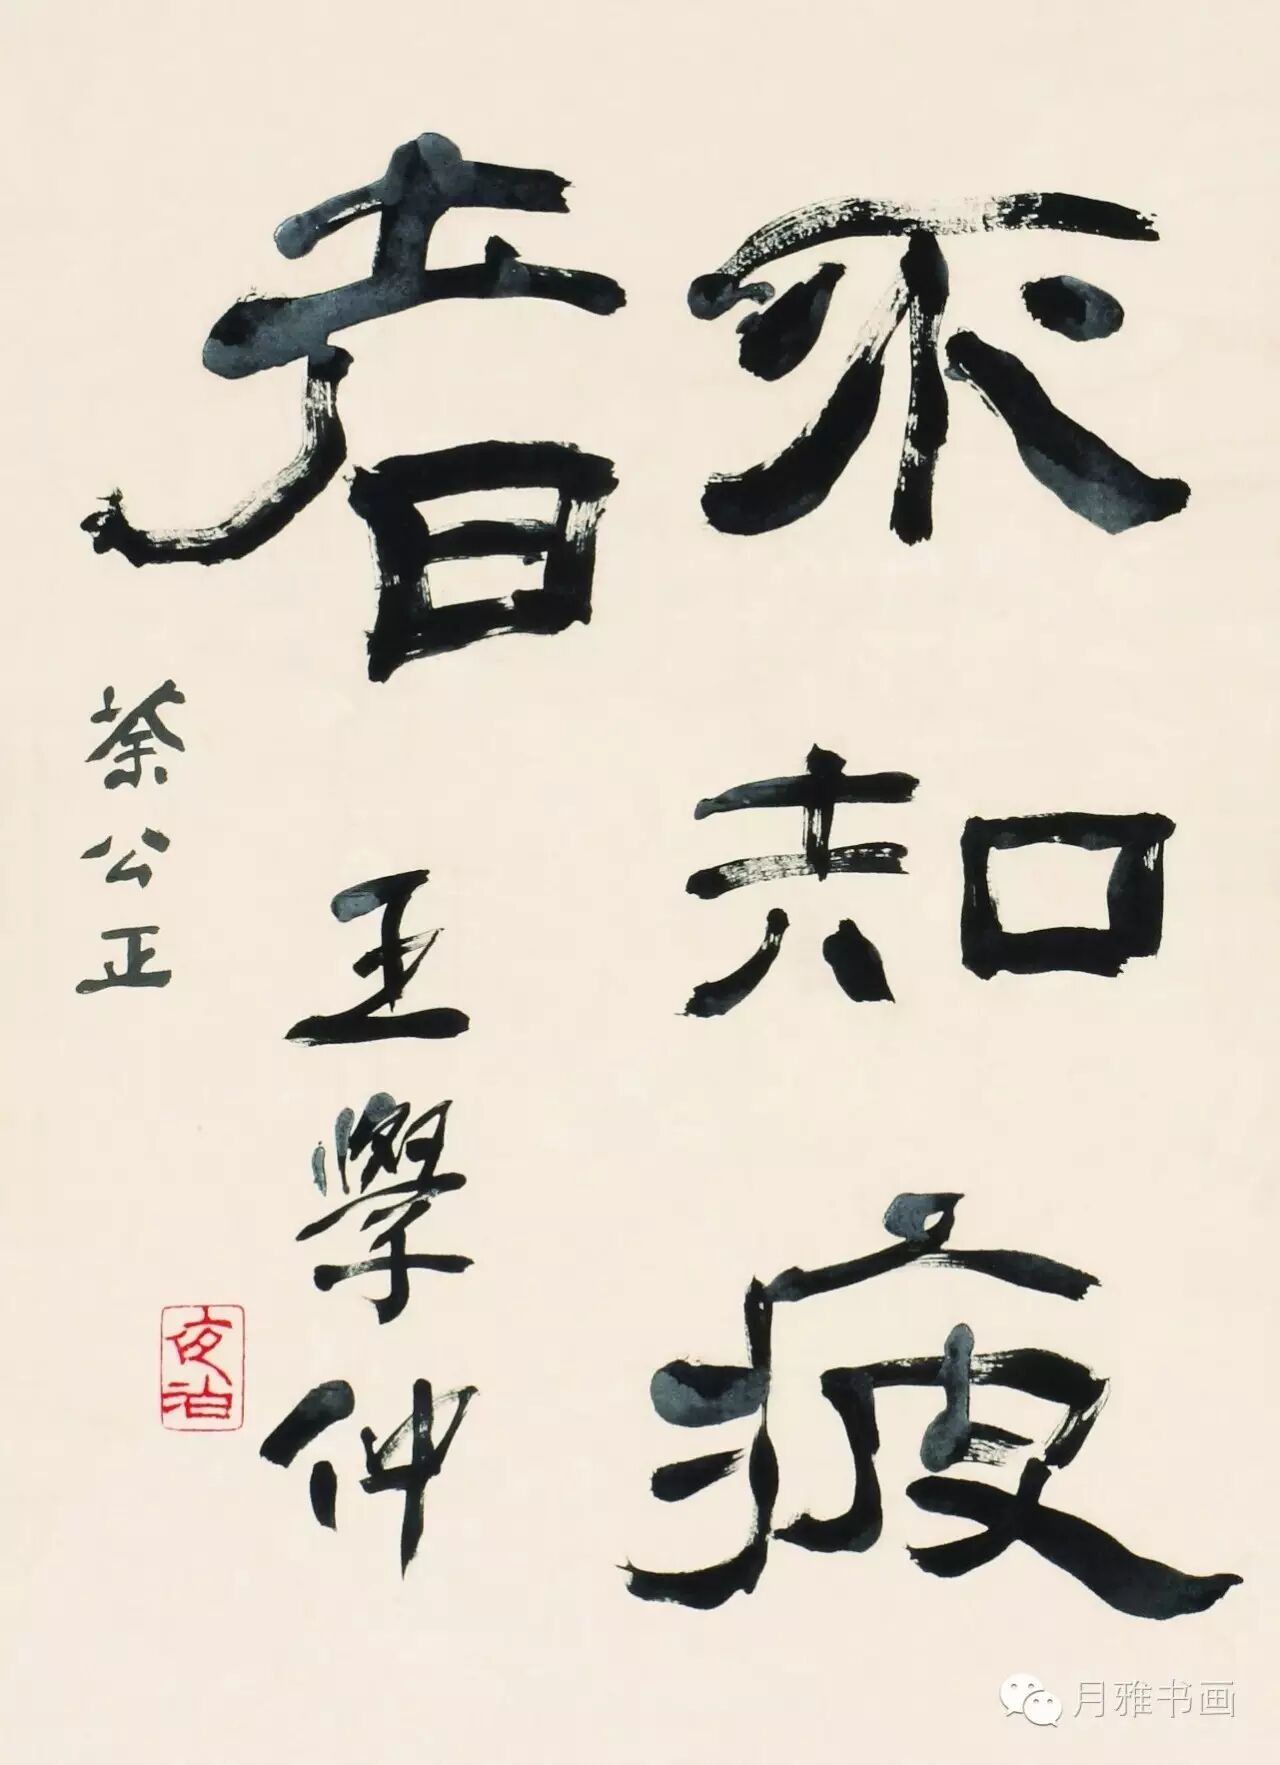 不知疲
者 王學仲
公正
夜泊
月雅书画